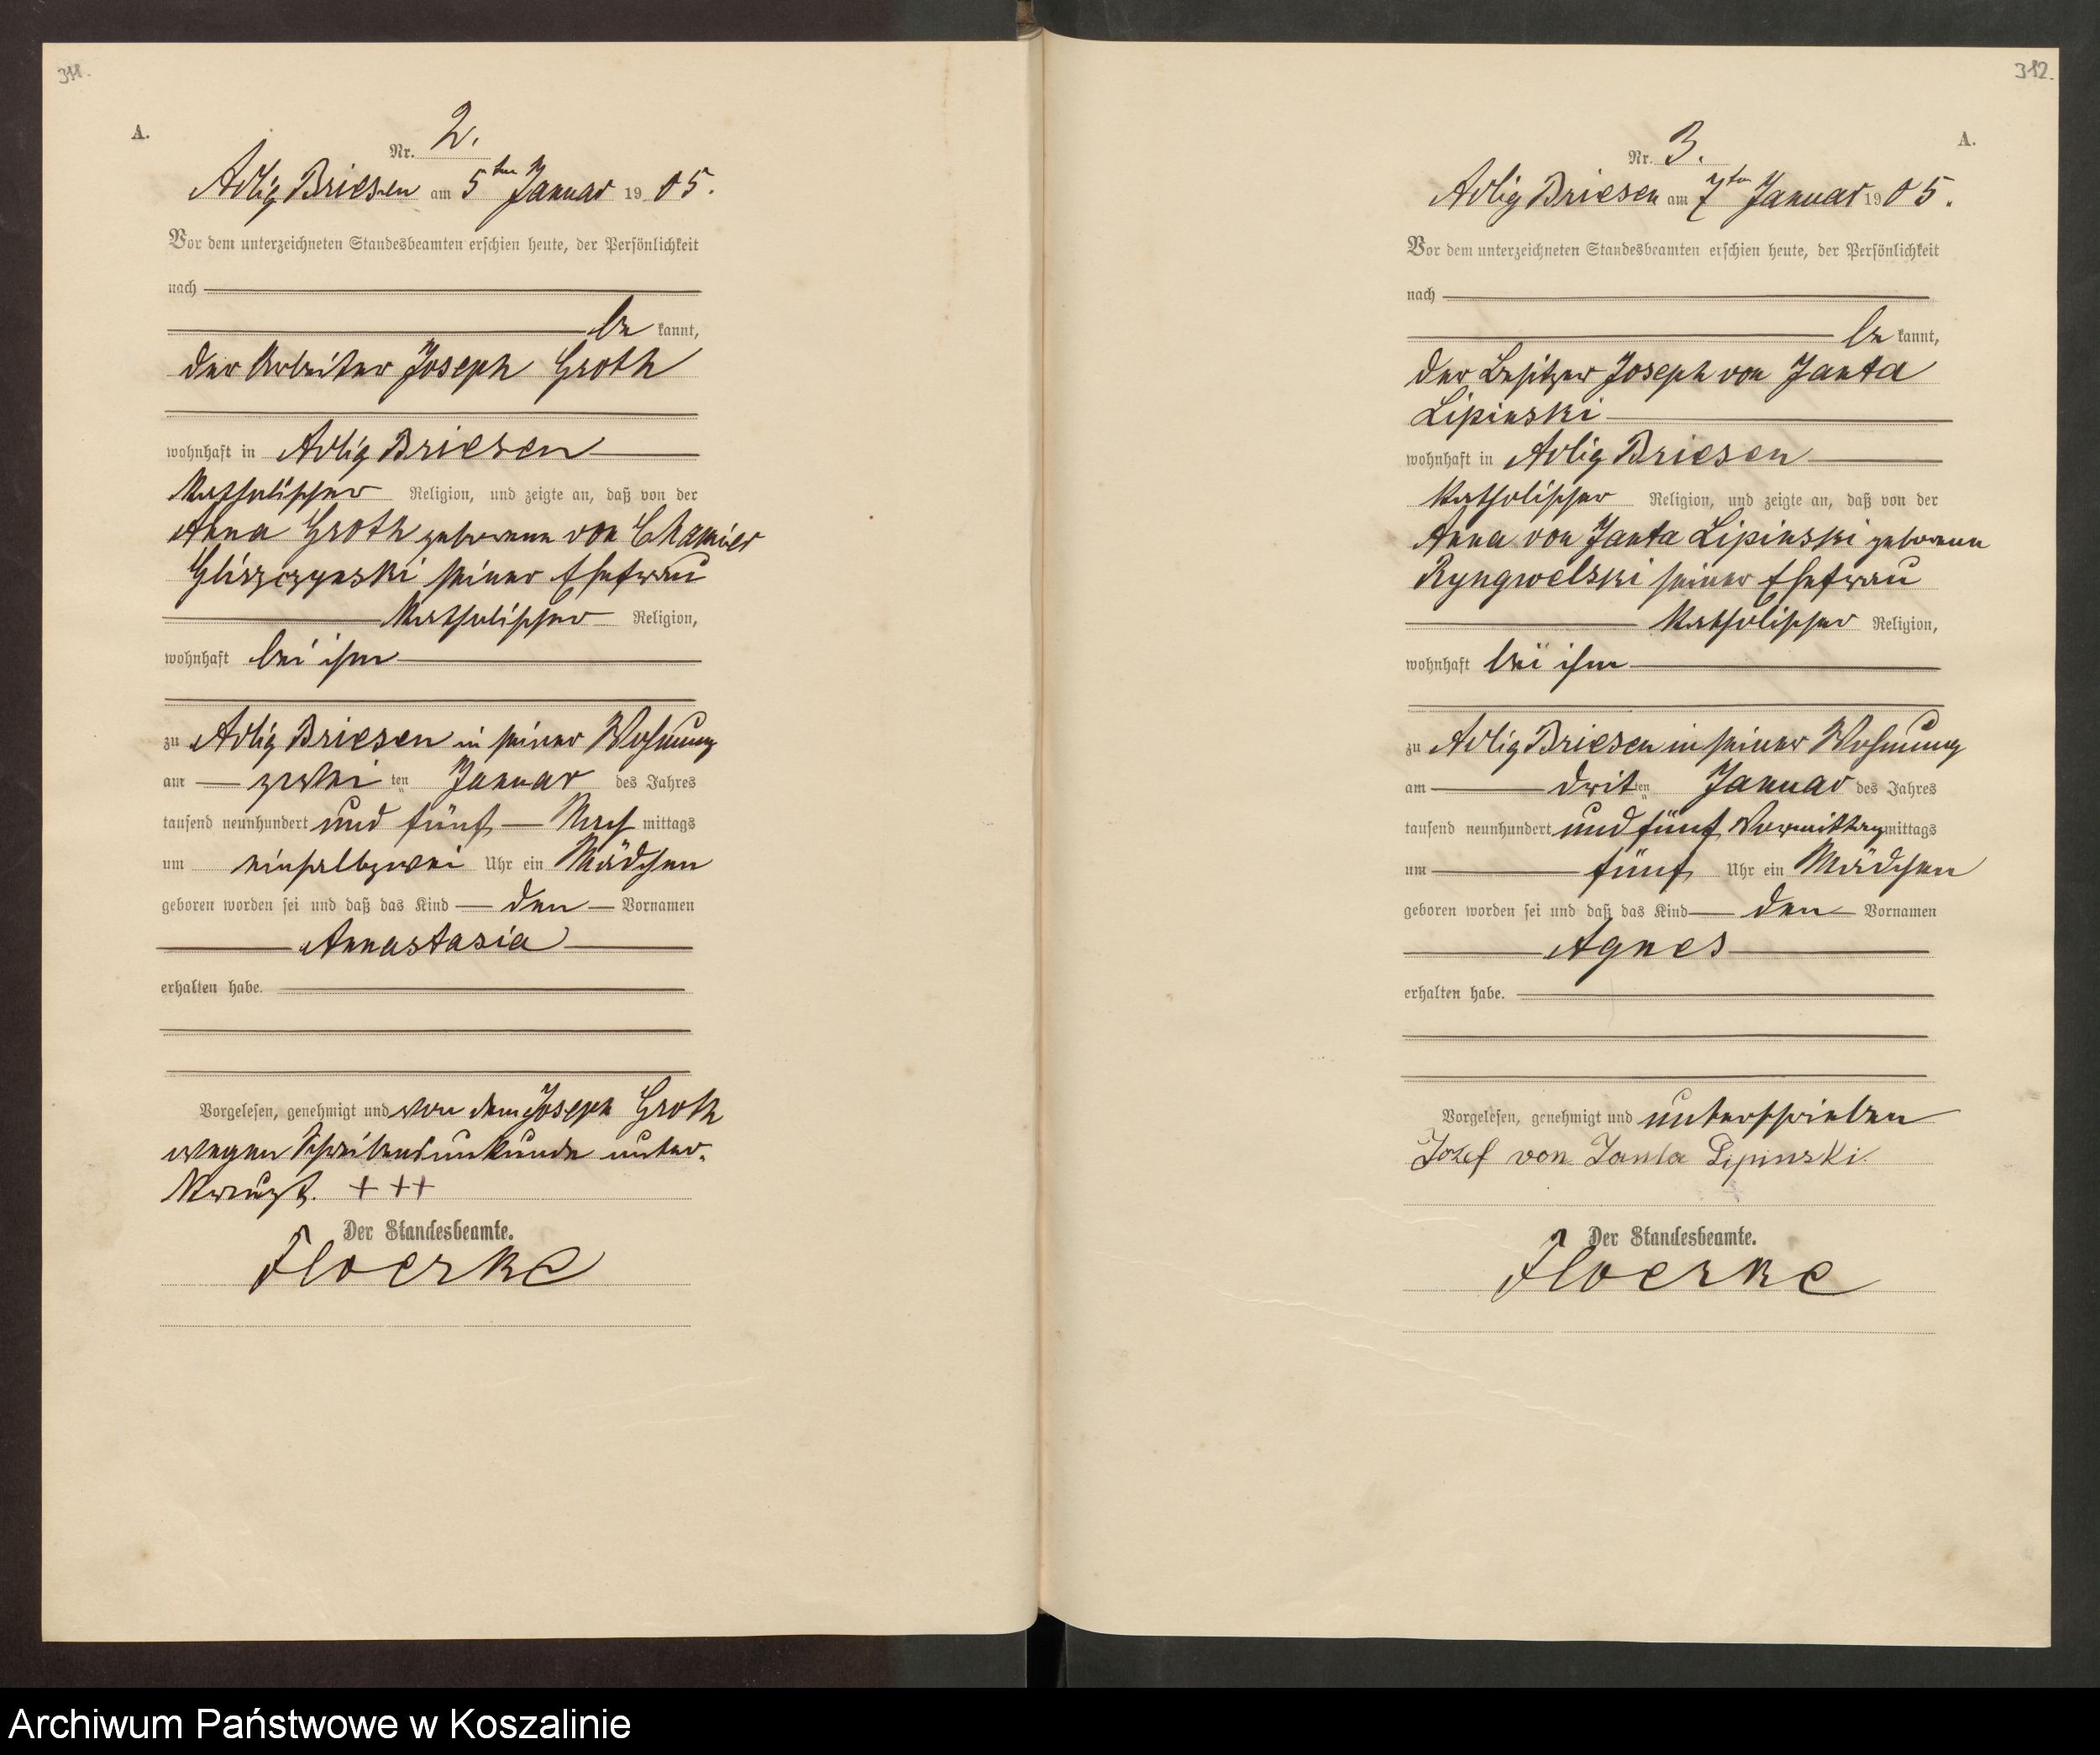 311.
A.
Nr. 2.
Adlig Briesen am 5ten Januar 1905.
Vor dem unterzeichneten Standesbeamten erschien heute, der Persönlichkeit
nach
be kannt,
der Arbeiter Joseph Groth
wohnhaft in Adlig Briesen
katholischer Religion, und zeigte an, daß von der
Anna Groth geborenen von Chamier
Gliszczynski seiner Ehefrau
katholischer Religion,
wohnhaft bei ihm
zu Adlig Briesen in seiner Wohnung
am zwei ten Januar des Jahres
tausend neunhundert und fünf Nach mittags
um einhalbzwei Uhr ein Mädchen
geboren worden sei und daß das Kind den Vornamen
Annastasia
erhalten habe.
Vorgelesen, genehmigt und von dem Joseph Groth
wegen Schreibensunkunde unter-
kreuzt. + ++
Der Standesbeamte.
Floerke
312.
A.
Nr. 3.
Adlig Briesen am 7ten Januar 1905.
Vor dem unterzeichneten Standesbeamten erschien heute, der Persönlichkeit
nach
be kannt,
der Besitzer Joseph von Janta
Lipinski
wohnhaft in Adlig Briesen
katholischer Religion, und zeigte an, daß von der
Anna von Janta Lipinski geborenen
Ryngwelski seiner Ehefrau
katholischer Religion,
wohnhaft bei ihm
zu Adlig Briesen in seiner Wohnung
am drit ten Januar des Jahres
tausend neunhundert und fünf Vormittag mittags
um fünf Uhr ein Mädchen
geboren worden sei und daß das Kind den Vornamen
Agnes
erhalten habe.
Vorgelesen, genehmigt und unterschrieben
Jozef von Janta Lipinski.
Der Standesbeamte.
Floerke
Archiwum Państwowe w Koszalinie